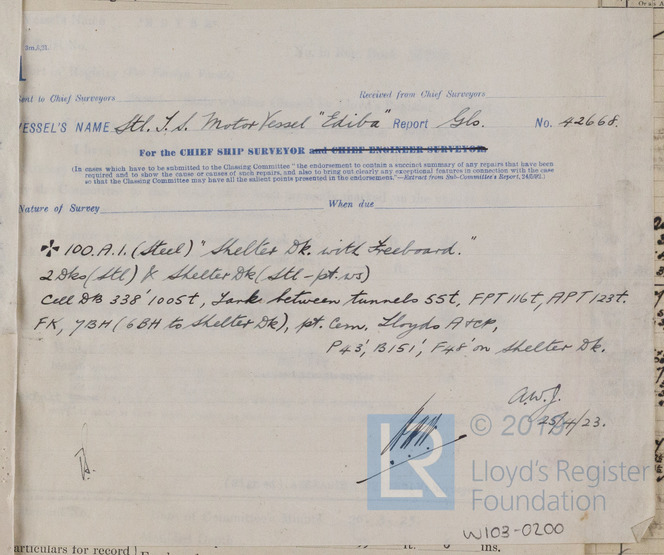 3m,5,21.
Sent to Chief Surveyors
Received from Chief Surveyors
VESSEL'S NAME Stl. T.S. Motor Vessel "Ediba" Report Gls. No. 42668.
For the CHIEF SHIP SURVEYOR and CHIEF ENGINEER SURVEYOR.
(In cases which have to be submitted to the Classing Committee "the endorsement to contain a succinct summary of any repairs that have been
required and to show the cause or causes of such repairs, and also to bring out clearly any exceptional features in connection with the case
so that the Classing Committee may have all the salient points presented in the endorsement."—Extract from Sub-Committee's Report, 24/6/92.)
Nature of Survey
When due
✠ 100.A.1. (Steel) "Shelter Dk. with Freeboard."
2 Dks (Stl) & Shelter Dk (Stl - pt. ws)
Cell DB 338' 1005t, Tank between tunnels 55t, FPT 116t, APT 123t.
FK, 7BH (6BH to Shelter Dk), pt. Cem. Lloyds A & CP,
P43', B151', F48' on Shelter Dk.
A.W.J.
25/4/23.
LR
Lloyd's Register
Foundation
W103-0200
particulars for record
ins.